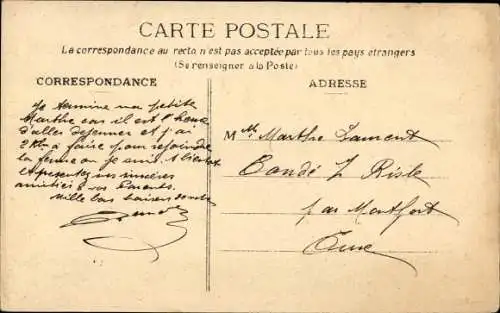 CARTE POSTALE
La correspondance au recto n'est pas acceptée par tous les pays étrangers
(Se renseigner à la Poste)
CORRESPONDANCE
ADRESSE
Je termine ma petite
Marthe car il est l'heure
d'aller dejeuner et j'ai
2 Km à faire pour rejoindre
la ferme ou je suis. A bientot
et presentez mes sincères
amitiés à vos Parents.
Mille bons baisers
M Marthe
Condé s/ Risle
par Montfort
Eure